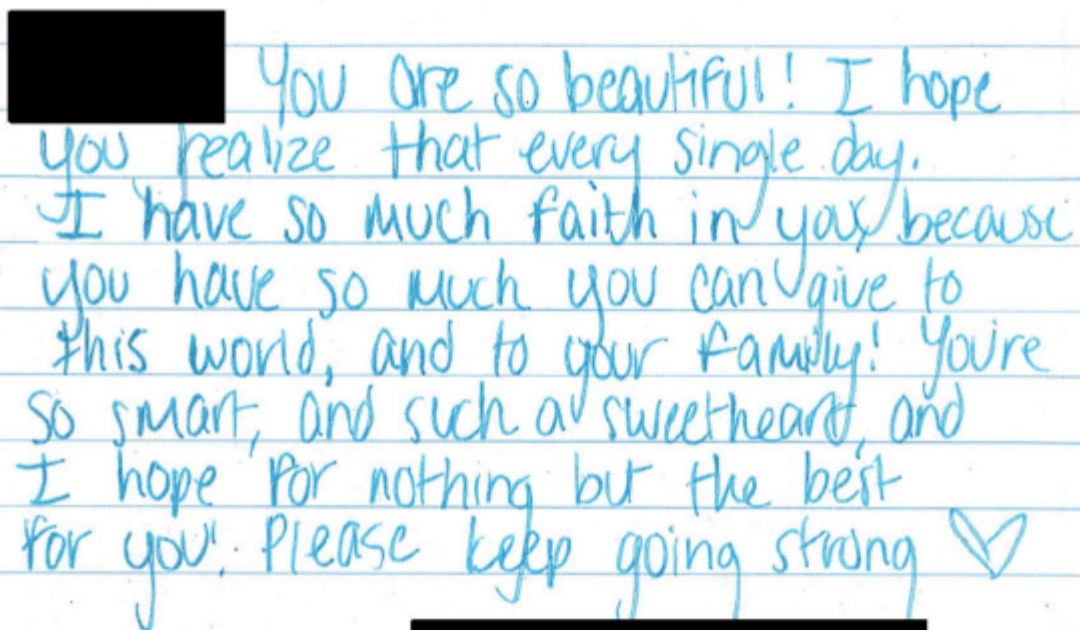 You are so beautiful! I hope
you realize that every single day.
I have so much faith in you, because
you have so much you can give to
this world, and to your family! You're
so smart, and such a sweetheart, and
I hope for nothing but the best
for you! Please keep going strong ♡